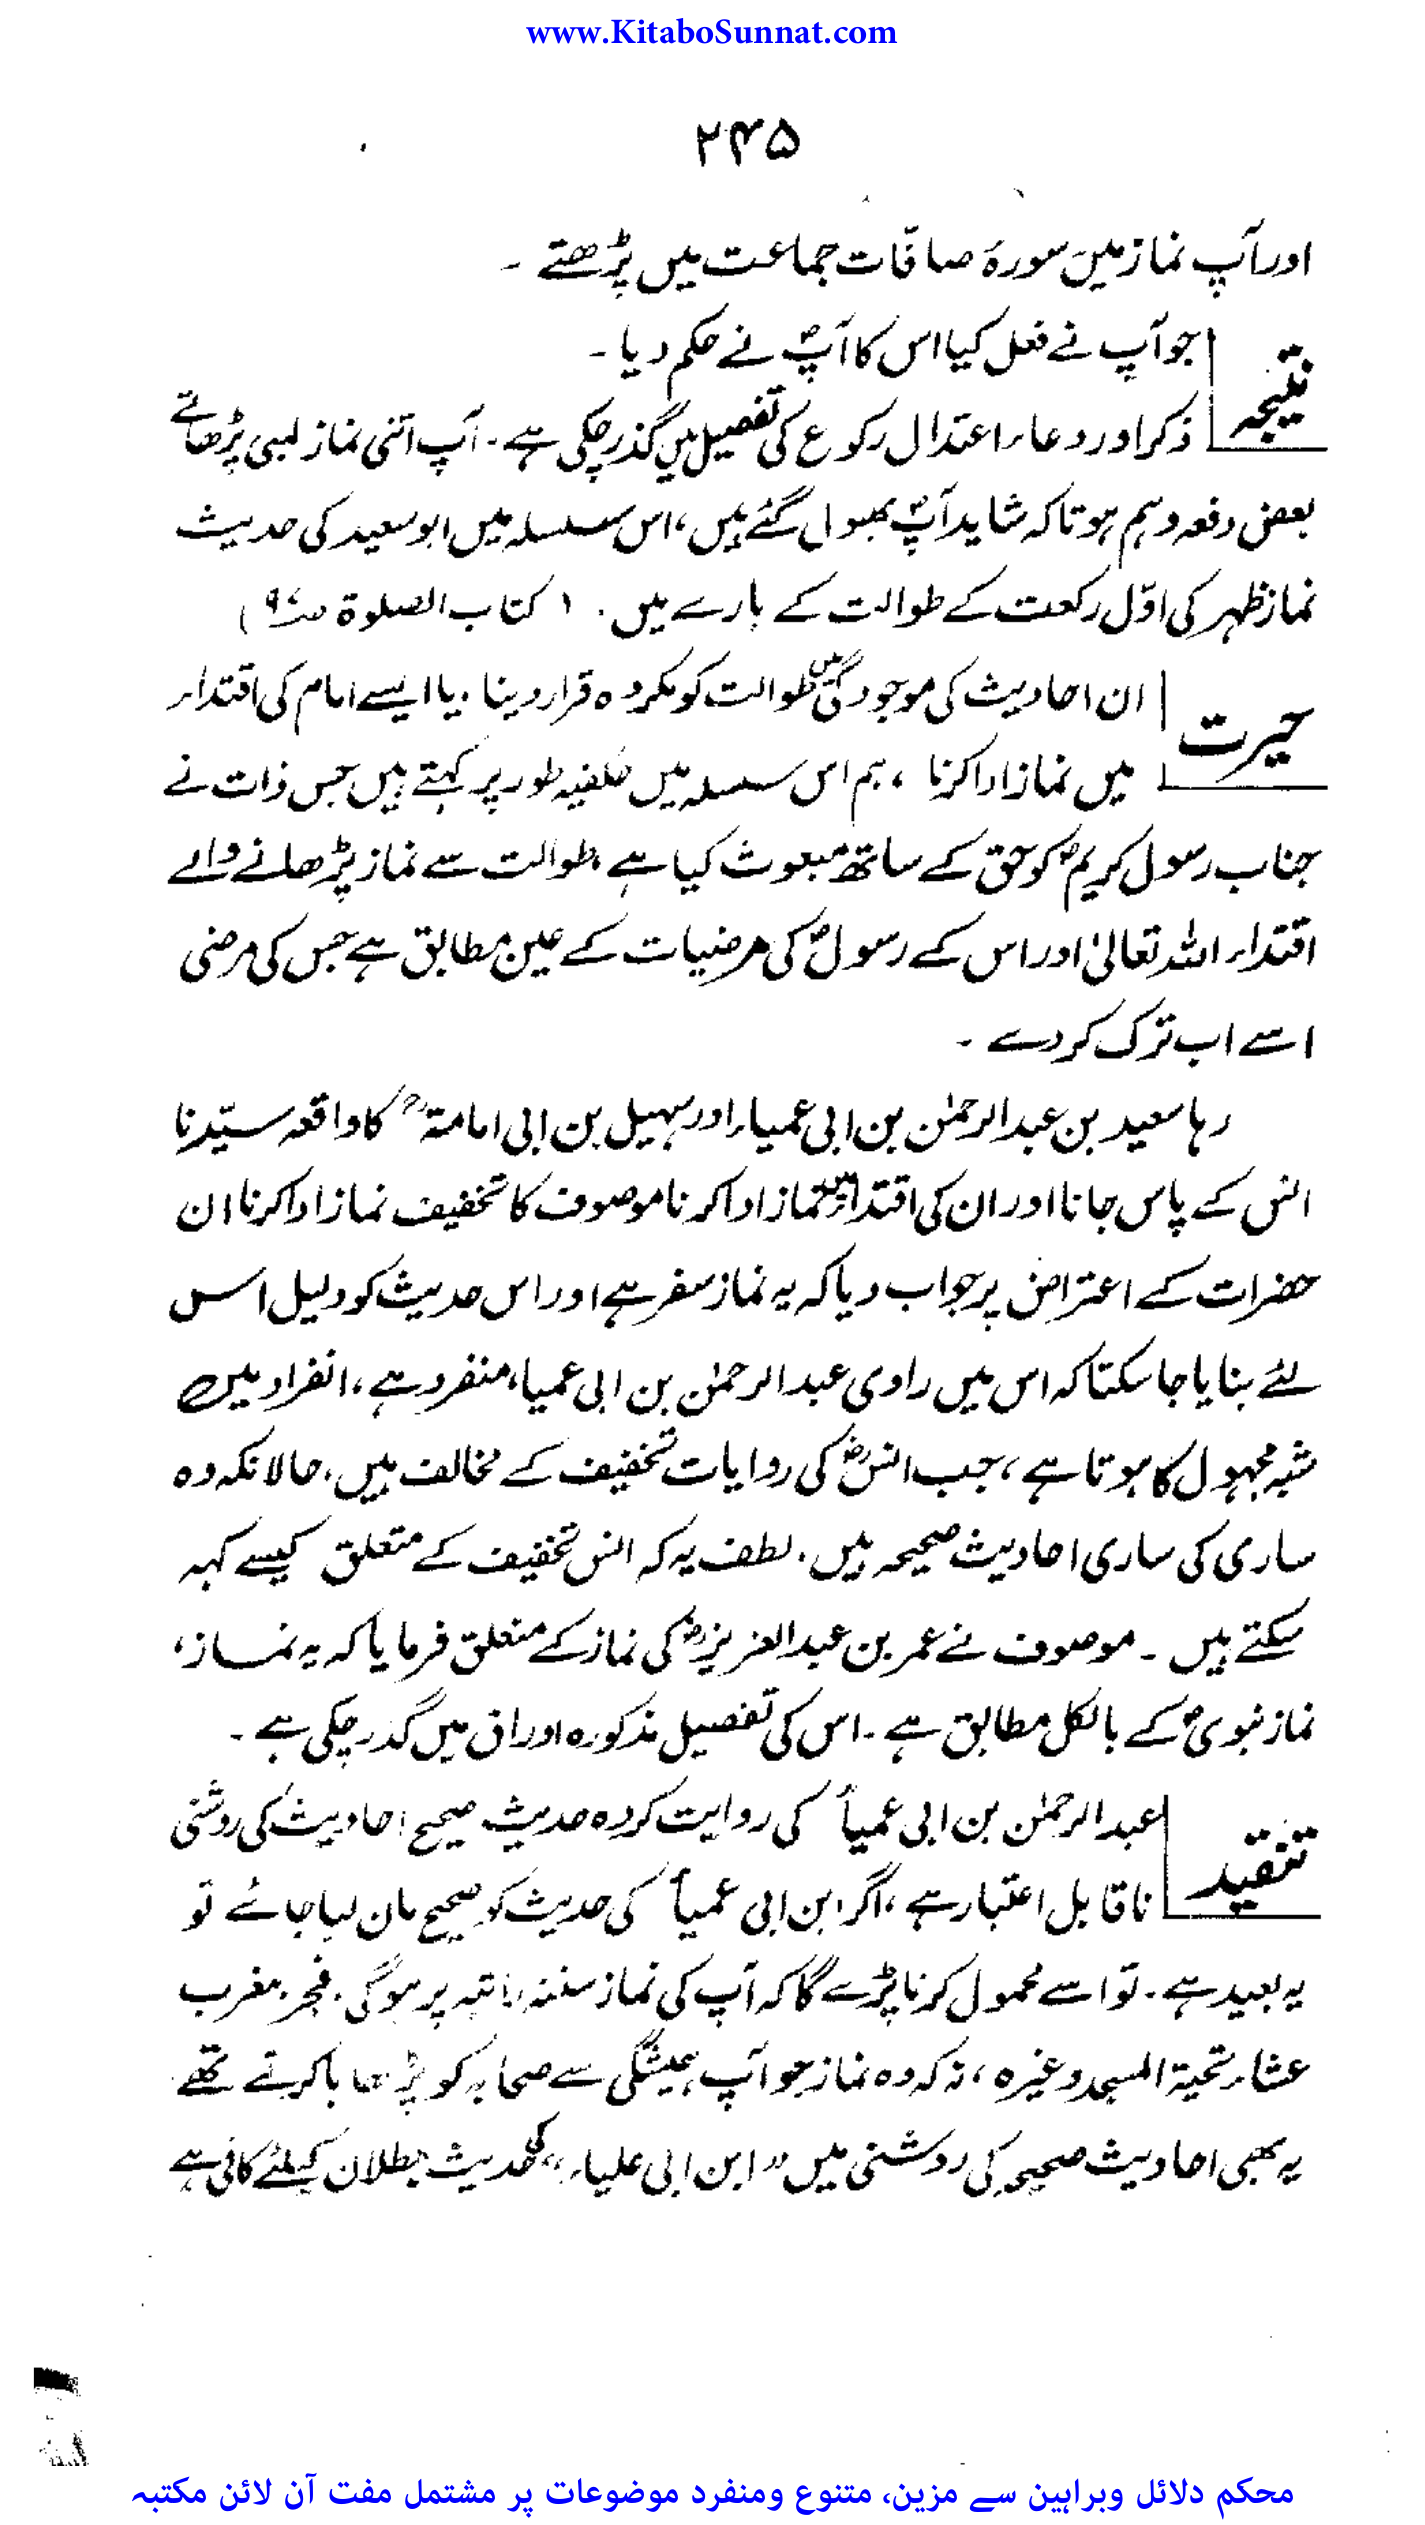 www.KitaboSunnat.com
۲۴۵
اور آپ نماز میں سورۂ صافّات جماعت میں پڑھتے ۔
نتیجہ
جو آپ نے فعل کیا اس کا آپؐ نے حکم دیا ۔
ذکر اور دعاء اعتدال رکوع کی تفصیل میں گذر چکی ہے ۔ آپ اتنی نماز لمبی پڑھاتے
بعض دفعہ وہم ہوتا کہ شاید آپؐ بھول گئے ہیں ، اس سلسلہ میں ابو سعید کی حدیث
نماز ظہر کی اوّل رکعت کے طوالت کے بارے میں ۔ ( کتاب الصلوۃ )
حیرت
ان احادیث کی موجودگی میں طوالت کو مکروہ قرار دینا ، یا ایسے امام کی اقتداء
میں نماز ادا کرنا ، ہم اس سلسلہ میں حلفیہ طور پر کہتے ہیں جس ذات نے
جناب رسول کریمؐ کو حق کے ساتھ مبعوث کیا ہے ، طوالت سے نماز پڑھانے والے
اقتداء اللہ تعالیٰ اور اس کے رسولؐ کی مرضیات کے عین مطابق ہے جس کی مرضی
اسے اب ترک کر دے ۔
رہا سعید بن عبدالرحمٰن بن ابی عمیاء اور سہیل بن ابی امامۃؒ کا واقعہ سیّدنا
انس کے پاس جانا اور ان کی اقتداء میں نماز ادا کرنا موصوف کا تخفیف نماز ادا کرنا ان
حضرات کے اعتراض پر جواب دیا کہ یہ نماز سفر ہے اور اس حدیث کو دلیل اس
لئے بنایا جا سکتا کہ اس میں راوی عبدالرحمٰن بن ابی عمیاء منفرد ہے ، انفراد میں
شبہ مجہول کا ہوتا ہے ، جب انسؓ کی روایات تخفیف کے مخالف ہیں ، حالانکہ وہ
ساری کی ساری احادیث صحیحہ ہیں ۔ لطف یہ کہ انس تخفیف کے متعلق کیسے کہہ
سکتے ہیں ۔ موصوف نے عمر بن عبدالعزیزؒ کی نماز کے متعلق فرمایا کہ یہ نماز ،
نماز نبویؐ کے بالکل مطابق ہے ۔ اس کی تفصیل مذکورہ اوراق میں گذر چکی ہے ۔
تنقید
عبدالرحمٰن بن ابی عمیأ کی روایت کردہ حدیث صحیح احادیث کی روشنی
ناقابل اعتبار ہے ، اگر ابن ابی عمیأ کی حدیث کو صحیح مان لیا جائے تو
یہ بعید ہے ۔ تو اسے محمول کرنا پڑے گا کہ آپ کی نماز سنن پر ہو گی ۔ فجر ، مغرب
عشاء تحیۃ المسجد وغیرہ ، نہ کہ وہ نماز جو آپ ہمیشگی سے صحابہ کو پڑھایا کرتے تھے
یہ بھی احادیث صحیحہ کی روشنی میں " ابن ابی علیاء " کی حدیث بطلان کیلئے کافی ہے
محکم دلائل وبراہین سے مزین، متنوع ومنفرد موضوعات پر مشتمل مفت آن لائن مکتبہ